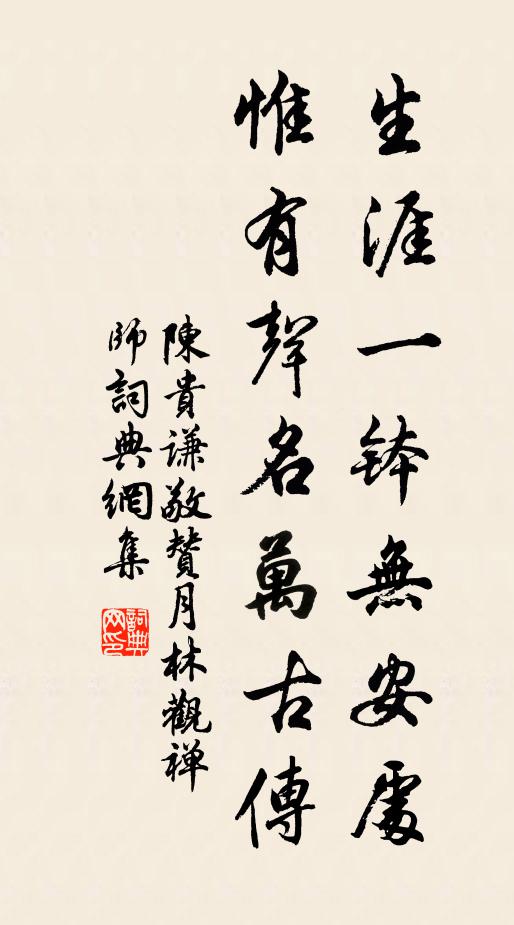 生涯一鉢無安處
惟有聲名萬古傳
陳貴谦敬贊月林觀禅
師詞典網集
詞典
网印